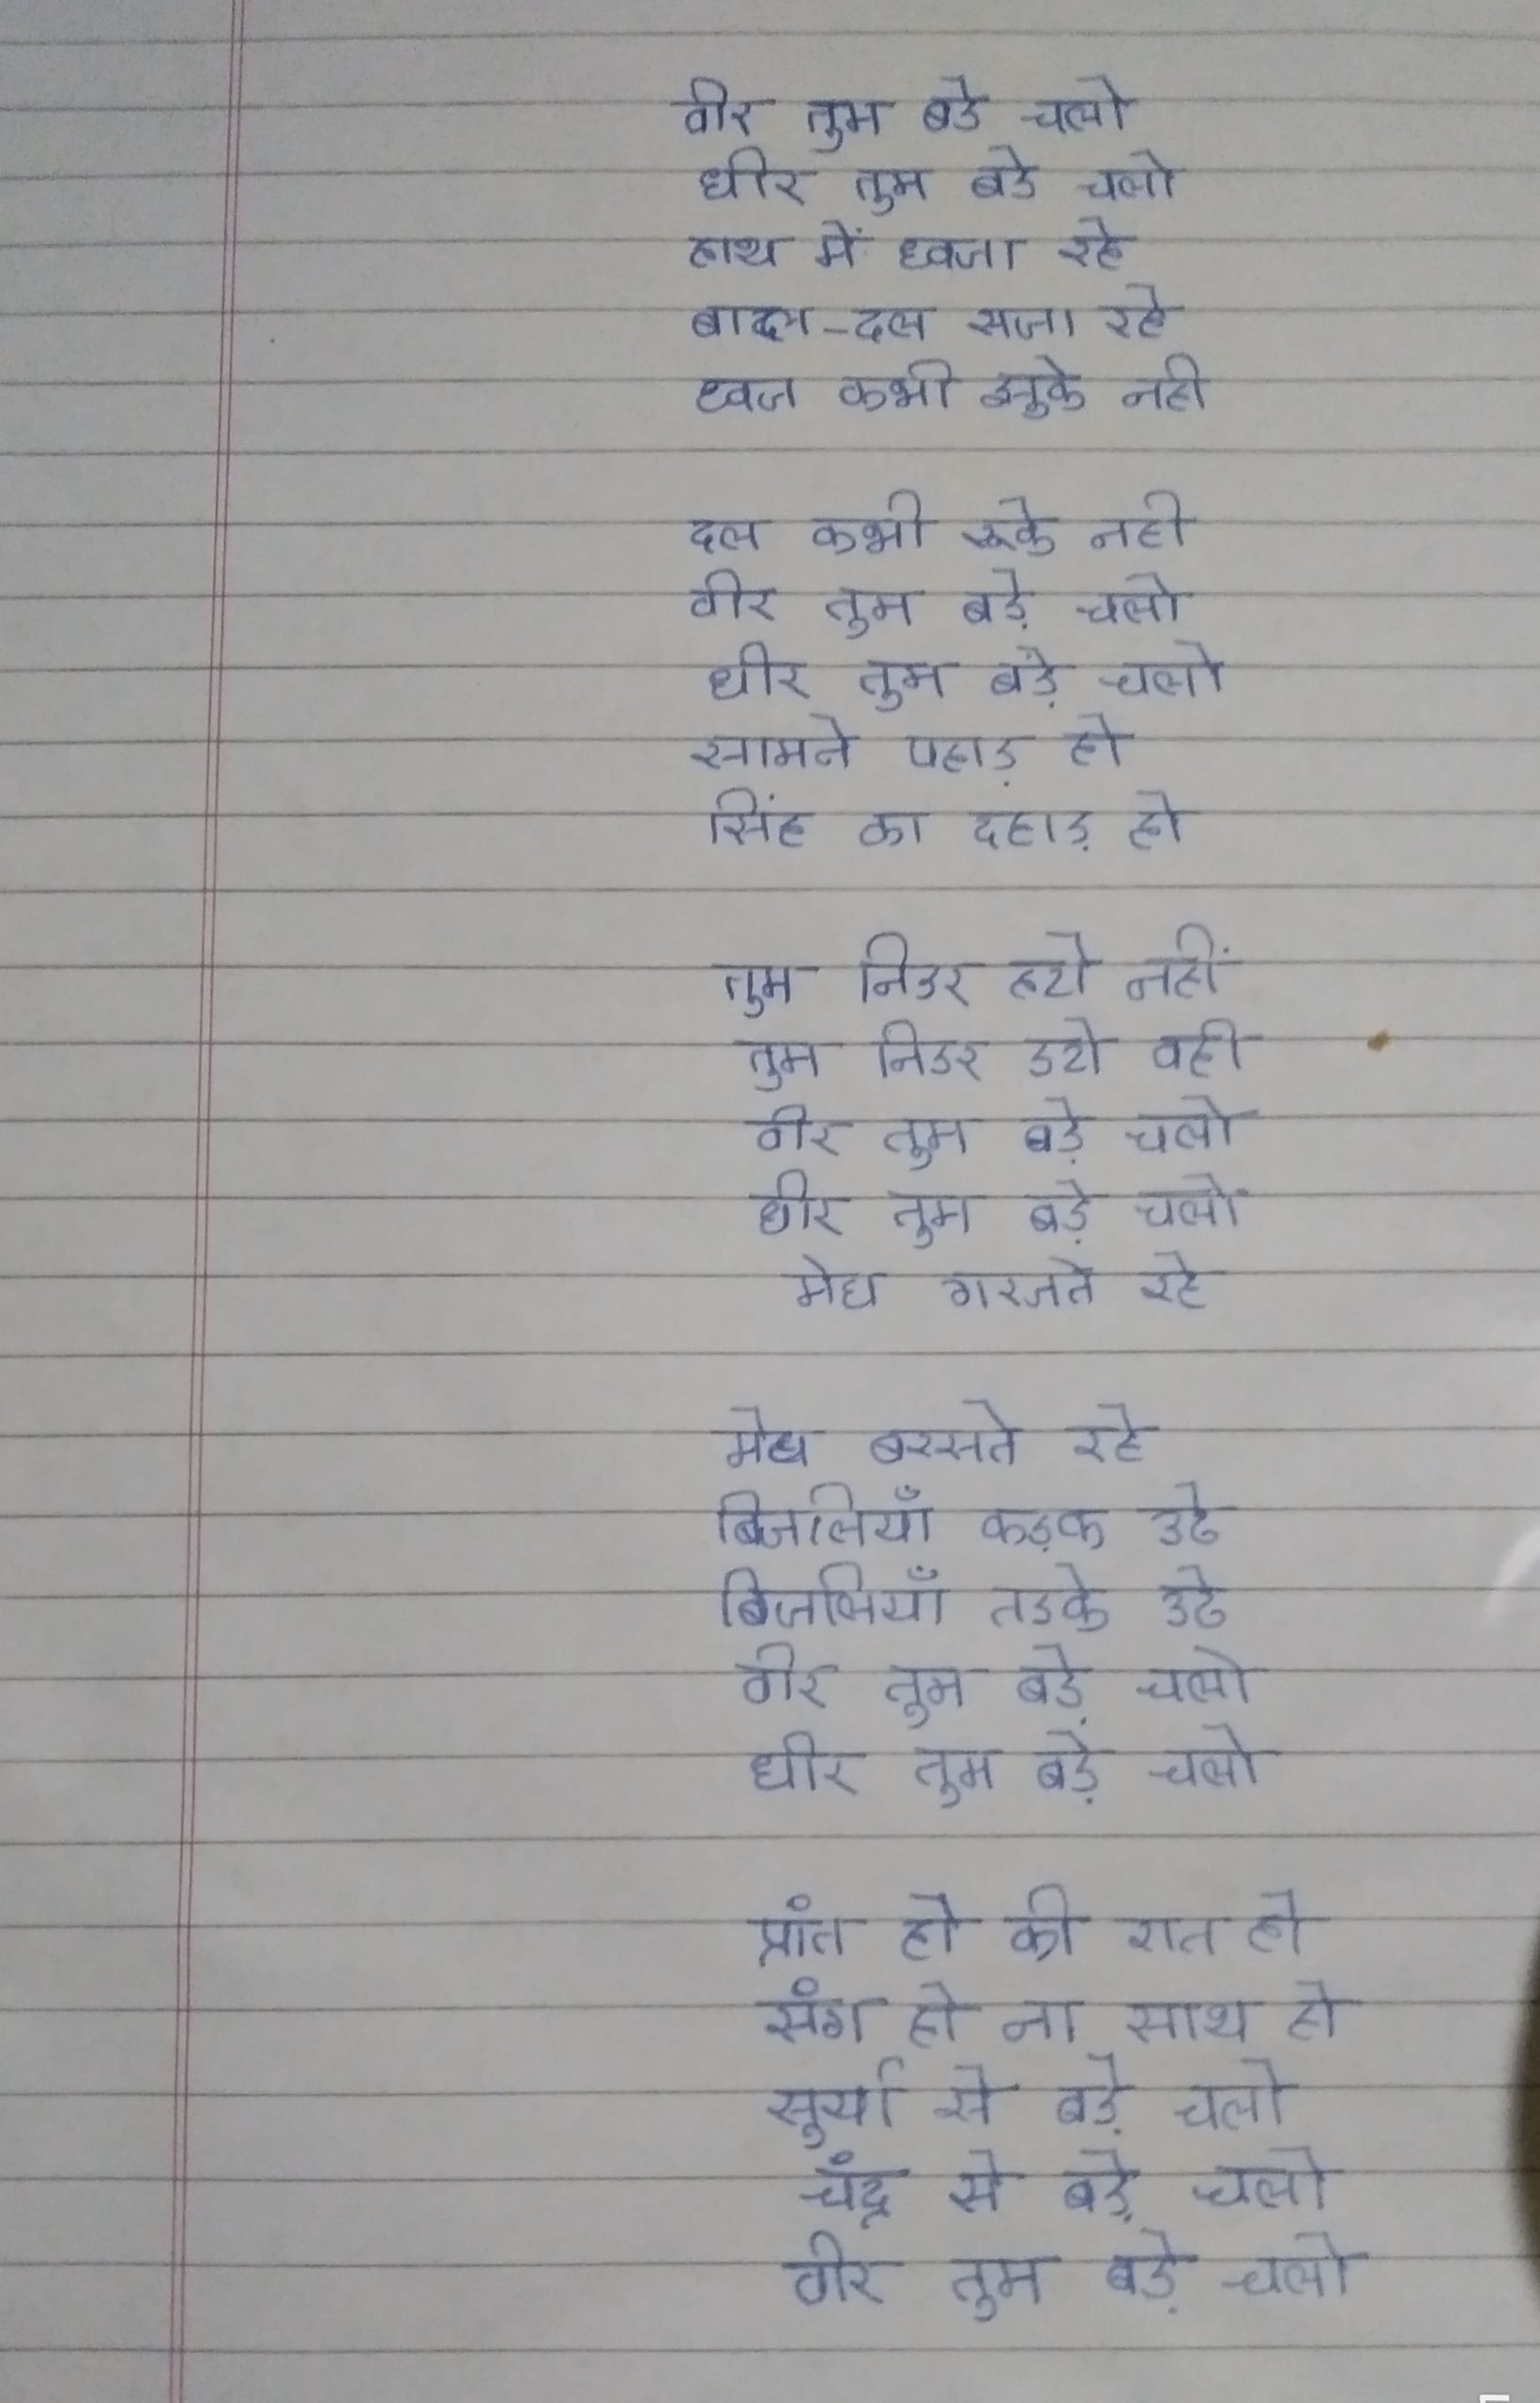 वीर तुम बडे चलो
धीर तुम बडे चलो
हाथ में ध्वजा रहे
बादल-दल सजा रहे
ध्वज कभी झुके नही
दल कभी रूके नही
वीर तुम बड़े चलो
धीर तुम बड़े चलो
सामने पहाड़ हो
सिंह का दहाड़ हो
तुम निडर हटो नहीं
तुम निडर डटो वही
वीर तुम बड़े चलो
धीर तुम बड़े चलो
मेघ गरजते रहे
मेघ बरसते रहे
बिजलियाँ कड़क उढे
बिजलियाँ तडके उढे
वीर तुम बड़े चलो
धीर तुम बड़े चलो
प्रांत हो की रात हो
संग हो ना साथ हो
सुर्या से बड़े चलो
चंद्र से बड़े चलो
वीर तुम बड़े चलो